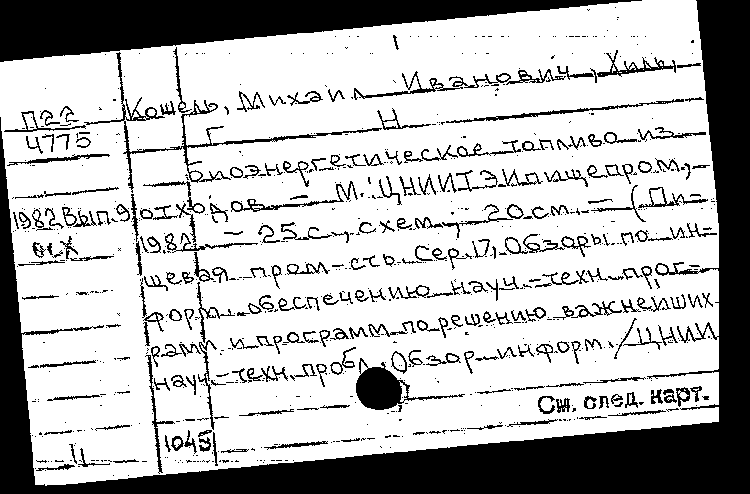 П22
4775
1982 Вып. 9
осх
Кошель, Михаил Иванович, Хиль,
Г Н
Биоэнергетическое топливо из
отходов. – М.: ЦНИИТЭИпищепром,
1982. – 25 с., схем.; 20 см. – (Пи-
щевая пром-сть. Сер. 17, Обзоры по ин-
форм. обеспечению науч.-техн. прог-
рамм и программ по решению важнейших
науч.-техн. пробл. Обзор. информ. / ЦНИИ
См. след. карт.
11 1045